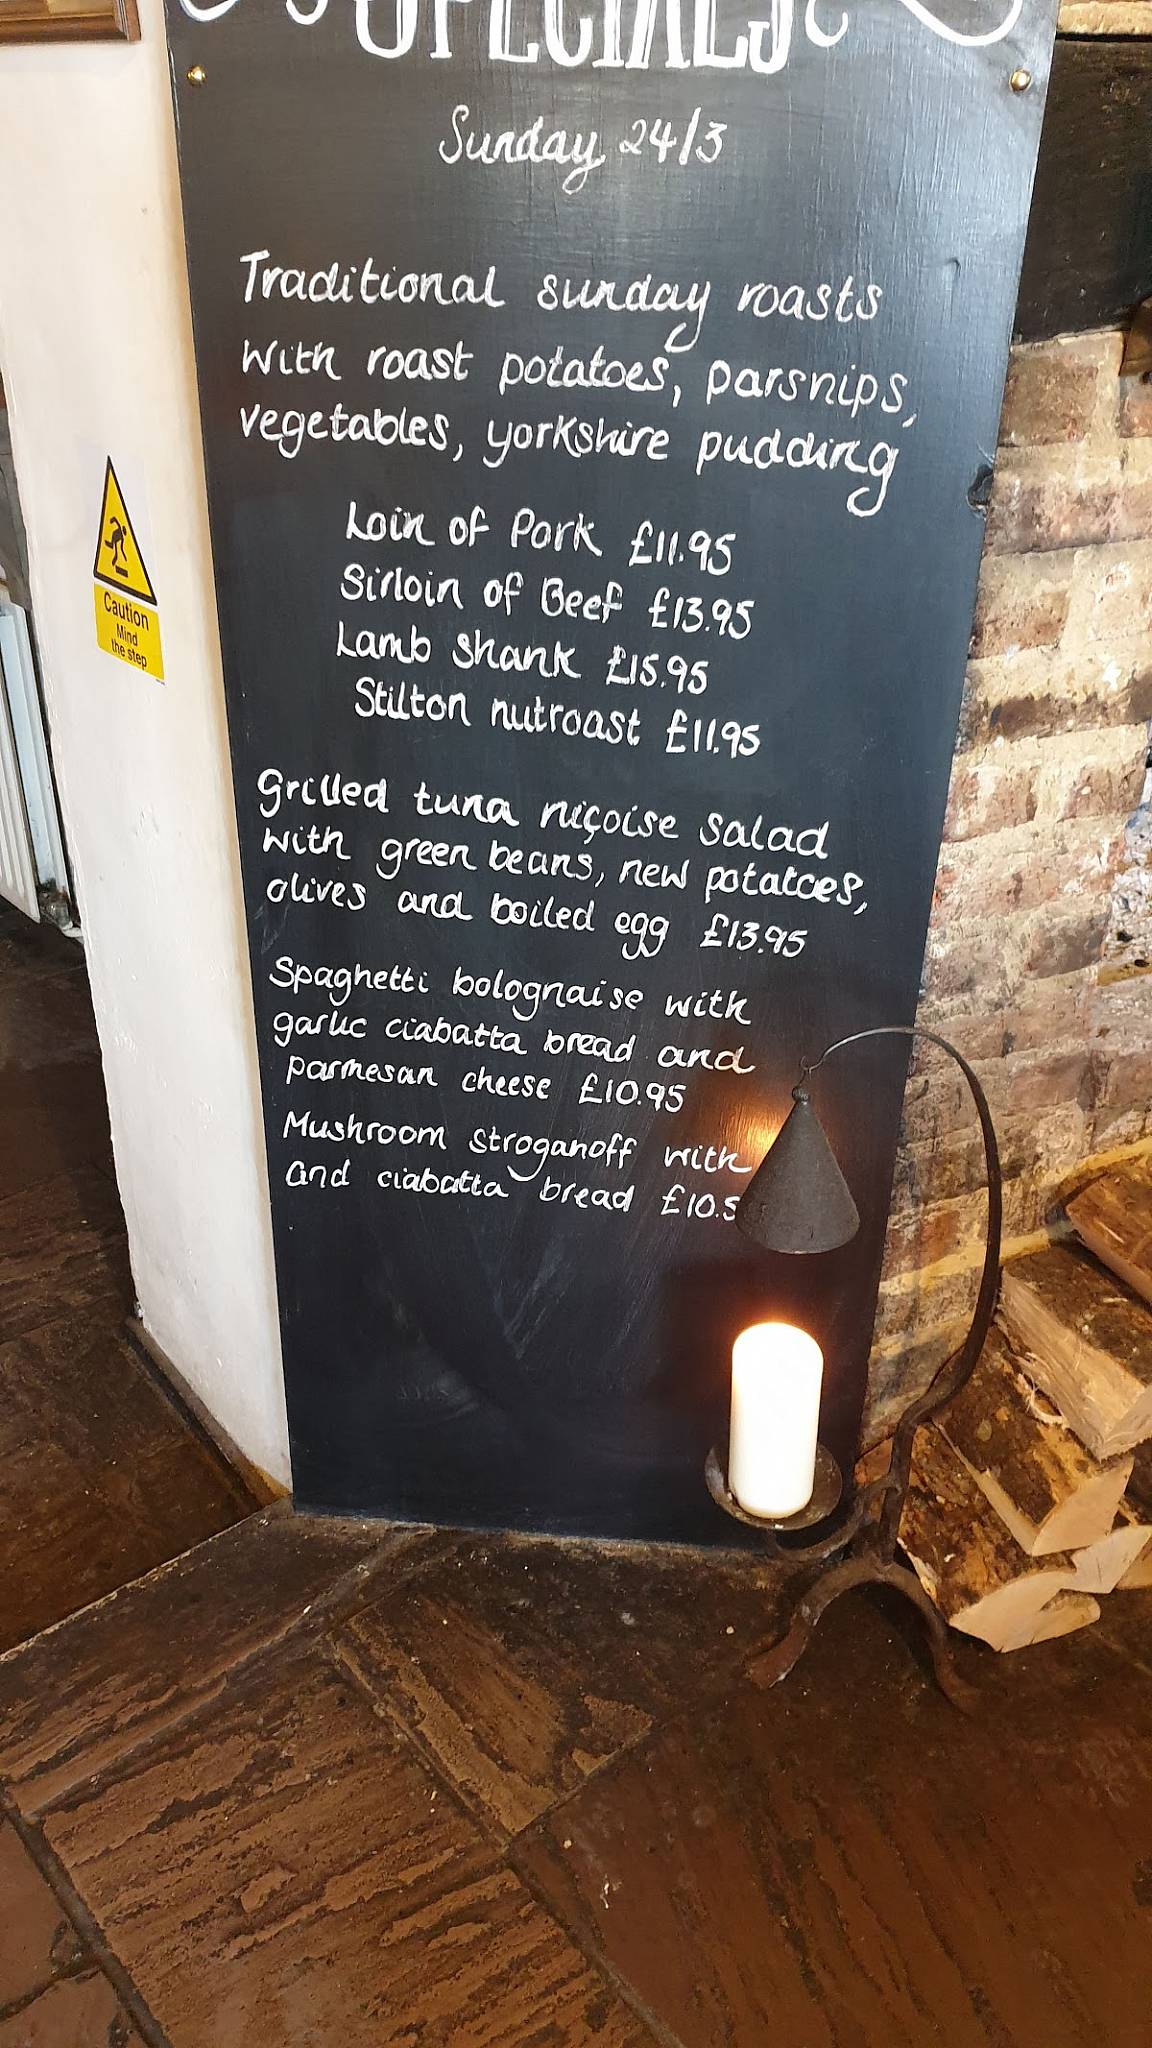 SPECIALS
Sunday 24/3
Traditional sunday roasts
with roast potatoes, parsnips,
vegetables, yorkshire pudding
Loin of Pork £11.95
Sirloin of Beef £13.95
Lamb shank £15.95
Stilton nutroast £11.95
Grilled tuna niçoise salad
with green beans, new potatoes,
olives and boiled egg £13.95
Spaghetti bolognaise with
garlic ciabatta bread and
parmesan cheese £10.95
Mushroom stroganoff with
and ciabatta bread £10.5
Caution
Mind
the step